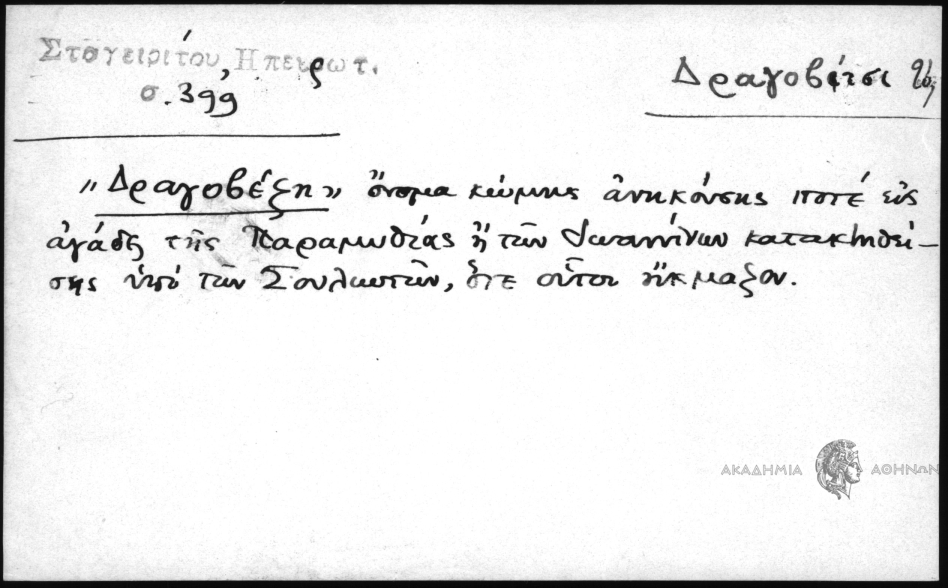 Σταγειρίτου Ηπειρωτ.
σ. 399
Δραγοβέτσι
"Δραγοβέζη" ὄνομα κώμης ἀνηκούσης ποτέ εἰς
ἀγάδες τῆς Παραμυθίας ἤ τῶν Ἰωαννίνων κατακτηθεί-
σης ὑπό τῶν Σουλιωτῶν, ὅτε οὗτοι ἤκμαζον.
ΑΚΑΔΗΜΙΑ ΑΘΗΝΩΝ